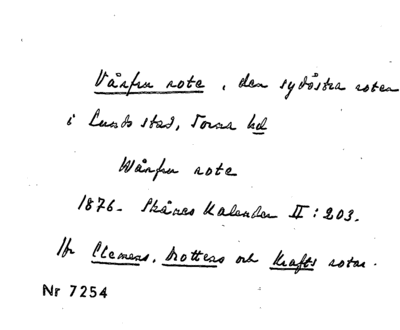 Vårfru rote, den sydöstra roten
i Lunds stad, Torna hd
Wårfru rote
1876. Skånes Kalender II : 203.
Jfr Clemens, Drottens och Krafts rotar.
Nr 7254